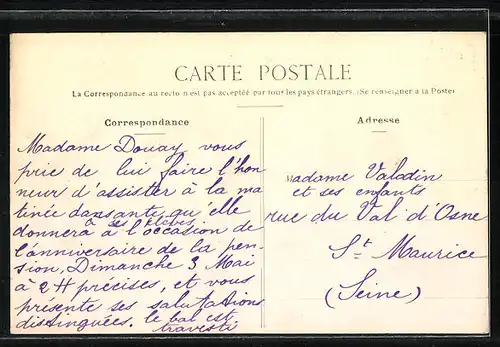 CARTE POSTALE
La Correspondance au recto n'est pas acceptée par tous les pays étrangers. (Se renseigner à la Poste)
Correspondance
Madame Douay vous
prie de lui faire l'hon
neur d'assister à la ma
tinée dansante qu'elle
à ses élèves
donnera à l'occasion de
l'anniversaire de la pen
sion, Dimanche 3 Mai
à 2H précises, et vous
présente ses salutations
distinguées. le bal est
travesti
Adresse
Madame Valadin
et ses enfants
rue du Val d'Osne
St Maurice
(Seine)